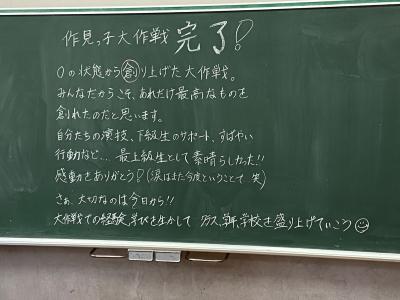 作見っ子大作戦 完了!
0の状態から創り上げた大作戦。
みんなだからこそ、あれだけ最高なものを
創れたのだと思います。
自分たちの演技、下級生のサポート、すばやい
行動など… 最上級生として素晴らしかった!!
感動をありがとう!(涙はまた今度ということで…笑)
さぁ、大切なのは今日から!!
大作戦での経験、学びを生かして クラス、学年、学校を盛り上げていこう